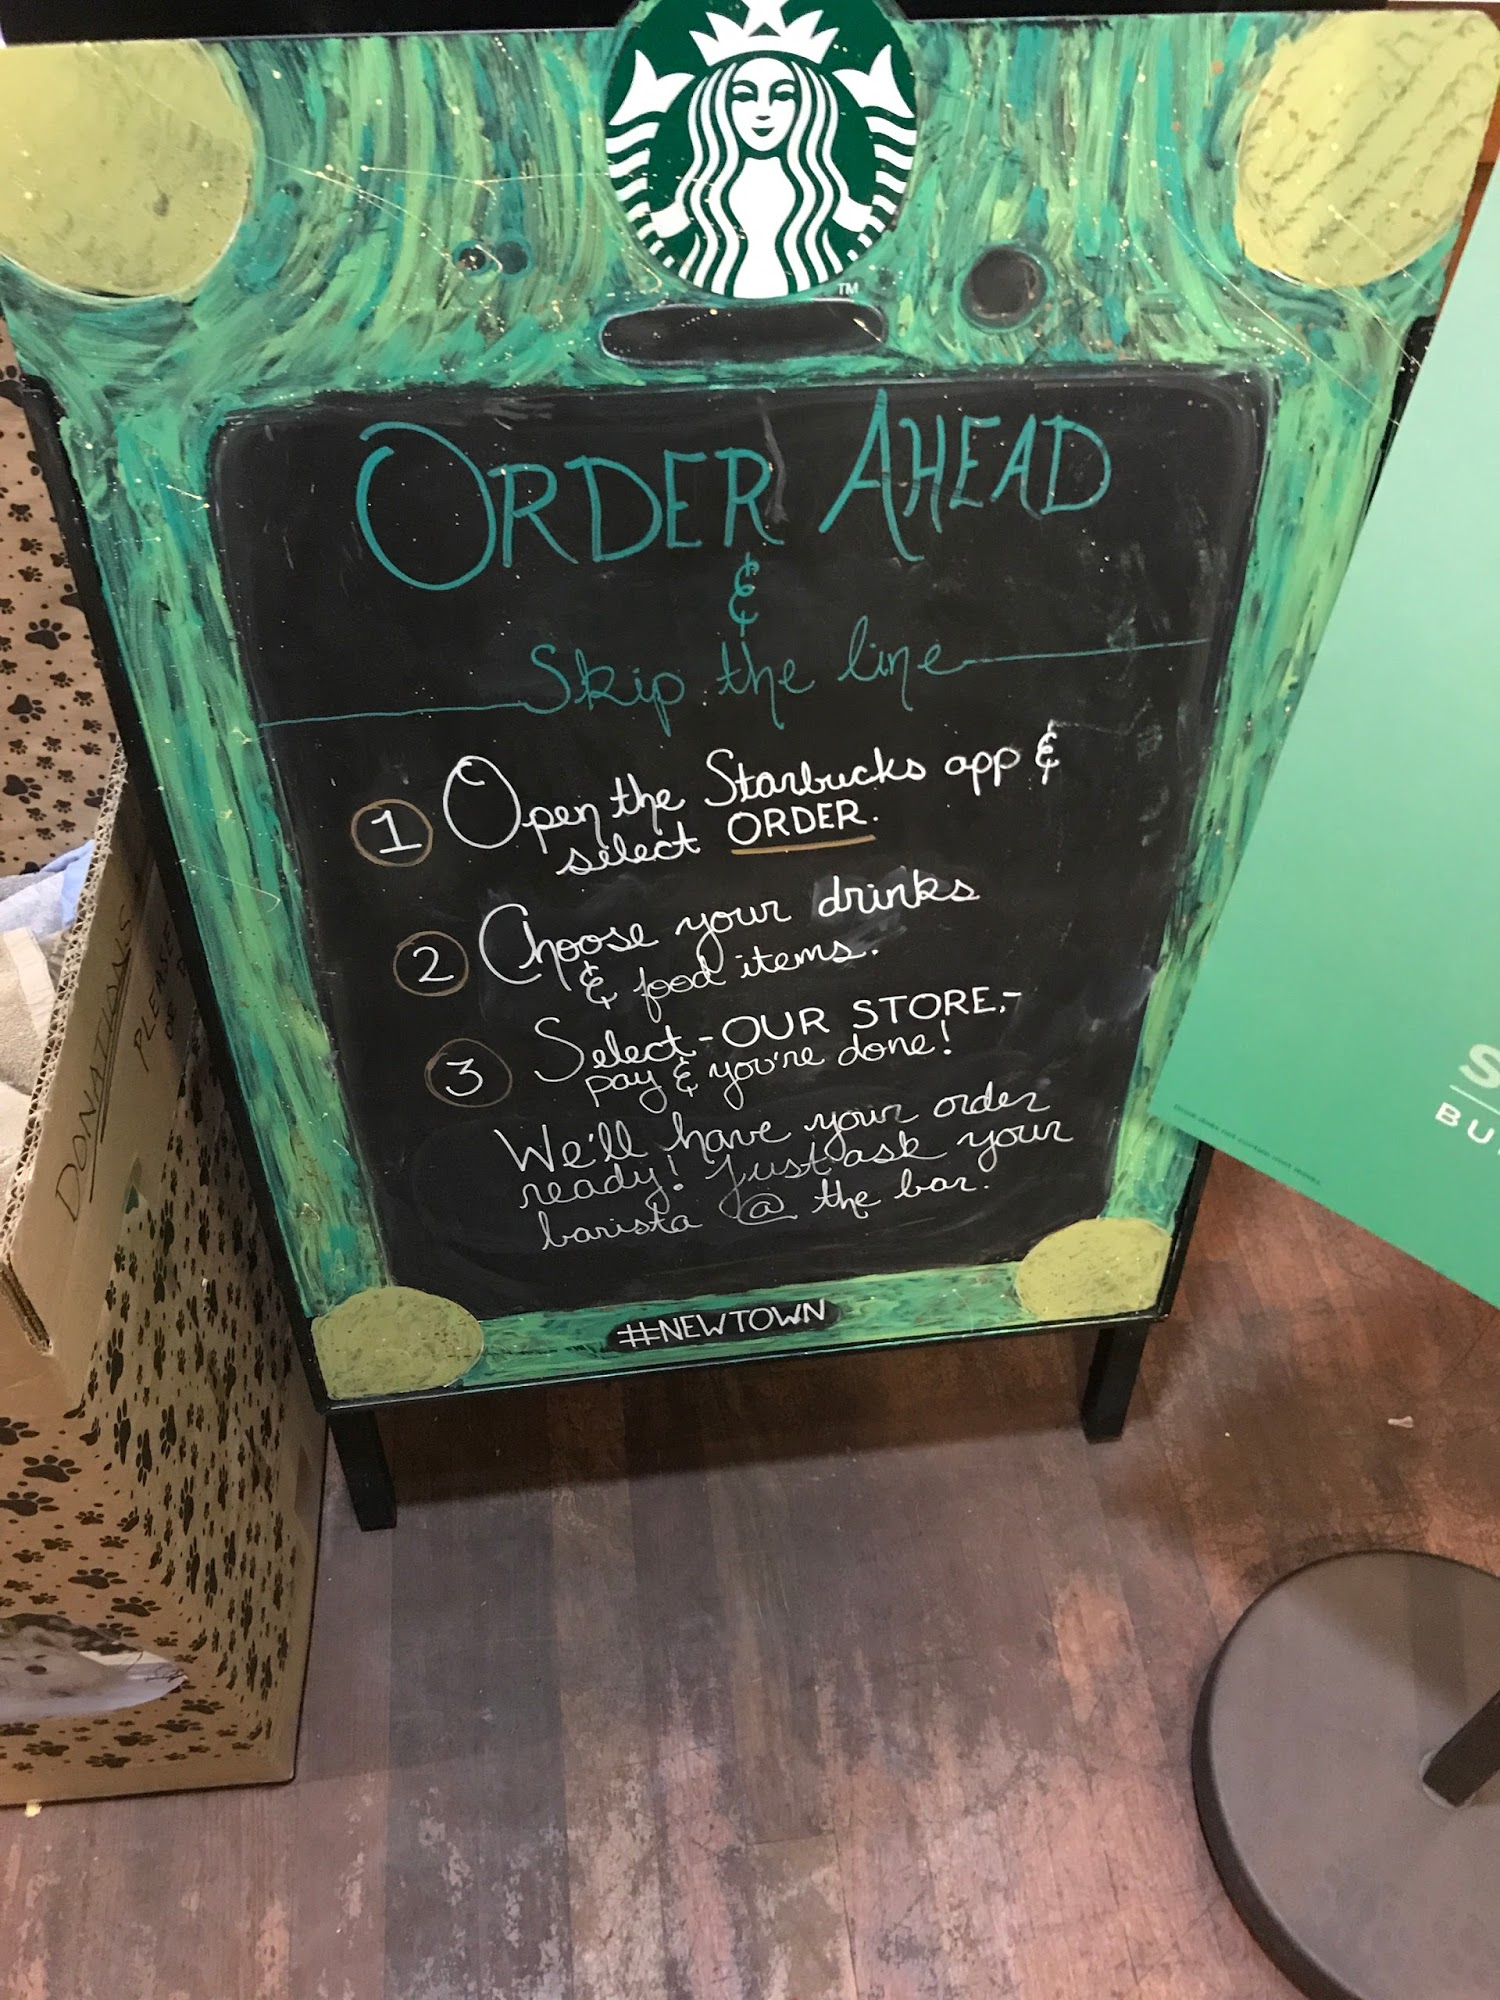 TM
ORDER AHEAD
&
Skip the line
1 Open the Starbucks app &
select ORDER.
2 Choose your drinks
& food items.
3 Select - OUR STORE,-
pay & you're done!
We'll have your order
ready! Just ask your
barista @ the bar.
#NEWTOWN
DONATIONS
PLEASE
S
BU